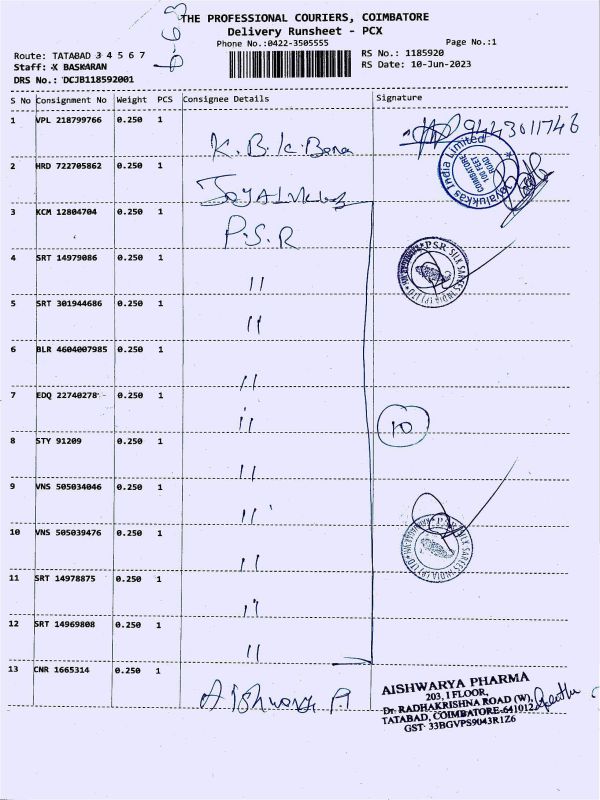 THE PROFESSIONAL COURIERS, COIMBATORE
Delivery Runsheet - PCX
Phone No.:0422-3505555
Page No.:1
Route: TATABAD 3 4 5 6 7
RS No.: 1185920
Staff: K BASKARAN
RS Date: 10-Jun-2023
DRS No.: DCJB118592001
S No Consignment No Weight PCS Consignee Details Signature
1 VPL 218799766 0.250 1 9443011746
K. B.
2 HRD 722705862 0.250 1
Jayalukkas India Limited
100 FEET ROAD
COIMBATORE
3 KCM 12804704 0.250 1 P.S.R
4 SRT 14979086 0.250 1 "
PSR SILK SAREES INDIA (P) LTD
5 SRT 301944686 0.250 1 "
6 BLR 4604007985 0.250 1 "
7 EDQ 22740278 0.250 1 " 10
8 STY 91209 0.250 1 "
9 VNS 505034046 0.250 1 "
10 VNS 505039476 0.250 1 "
PSR SILK SAREES INDIA (P) LTD
11 SRT 14978875 0.250 1 "
12 SRT 14969808 0.250 1 "
13 CNR 1665314 0.250 1
AISHWARYA PHARMA
203, I FLOOR,
Dr. RADHAKRISHNA ROAD (W),
TATABAD, COIMBATORE-641012
GST 33BGVPS9043R1Z6